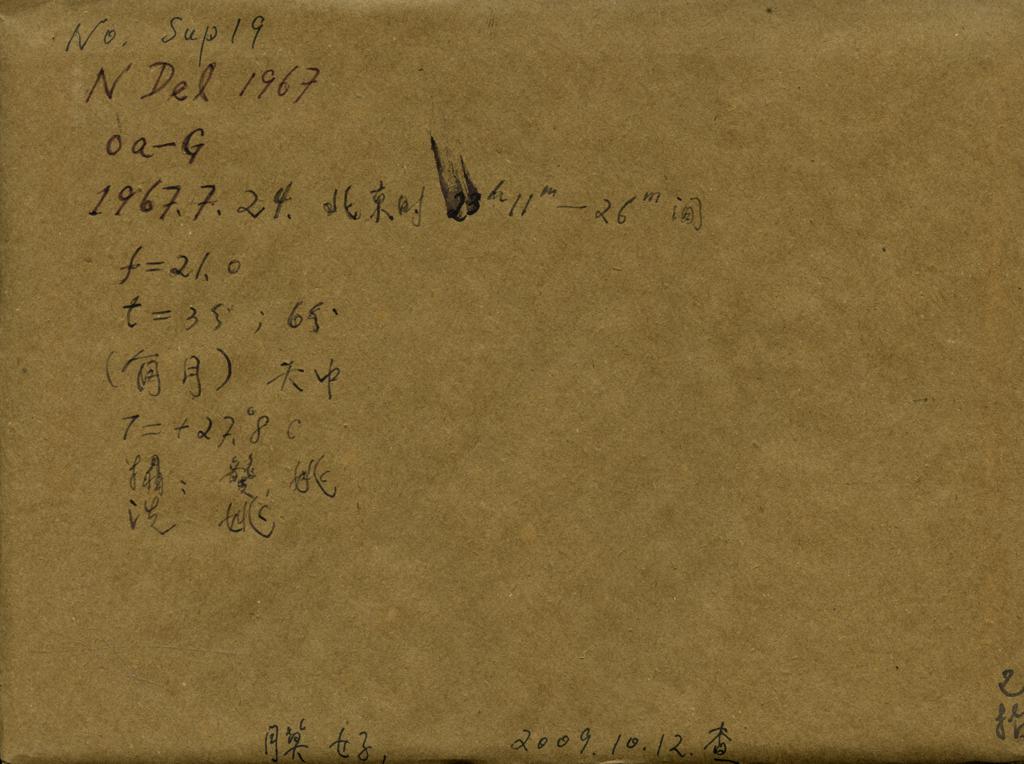 No. Sup19
N Del 1967
Oa-G
1967.7.24. 北京时 23h11m-26m间
f=21.0
t=3分; 6分.
(有月) 天中
T=+27.°8 C
摄: 龚, 姚
洗 姚
膜好, 2009.10.12.查
已